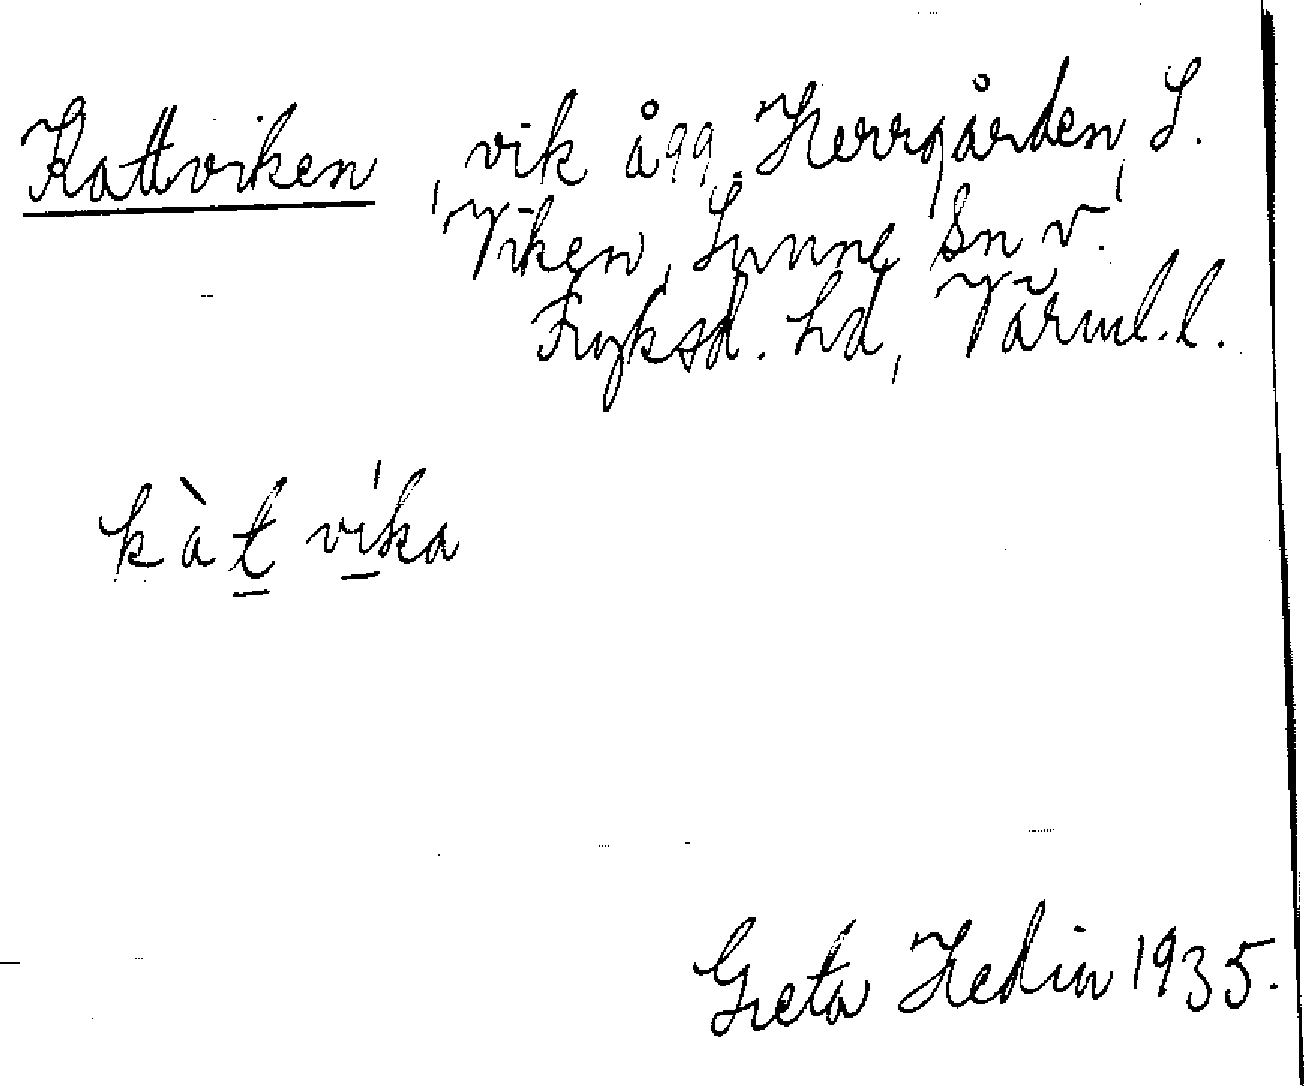 Kattviken, vik ägg. Herrgården, S.
Viken, Sunne Sn V.
Fryksd. hd, Värml. l.
kàt víka
Greta Hedin 1935.